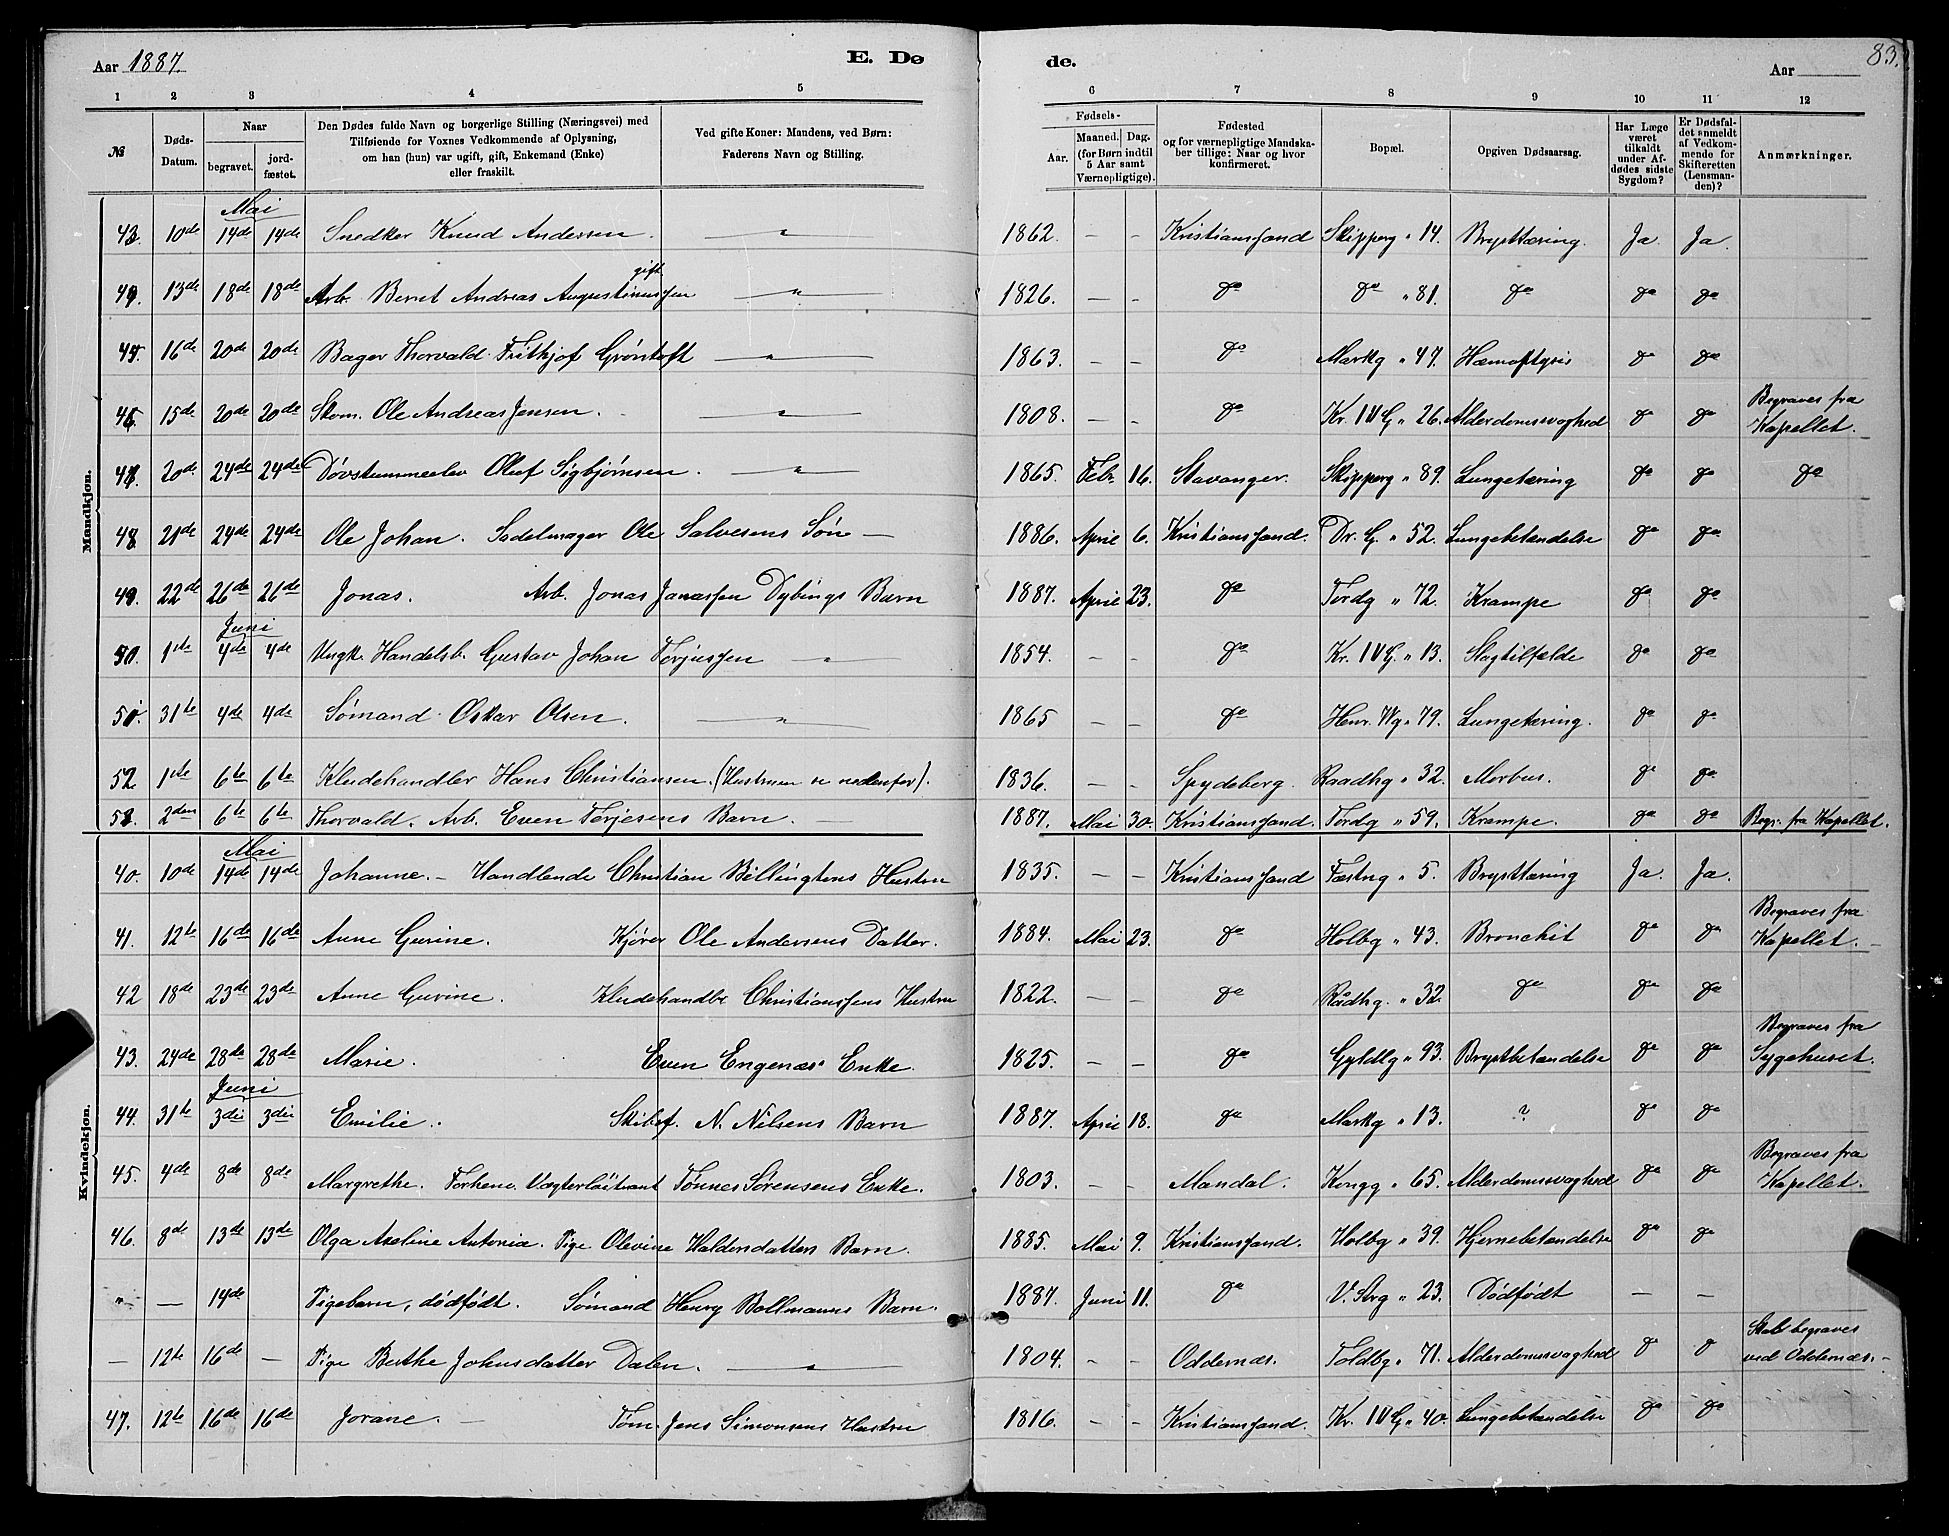 Aar 1887.
E. Dø
de.
Aar
83.
1 2 3 4 5 6 7 8 9 10 11 12
№
Døds-Datum.
Naar
begravet.
jord-fæstet.
Den Dødes fulde Navn og borgerlige Stilling (Næringsvei) med
Tilføiende for Voxnes Vedkommende af Oplysning,
om han (hun) var ugift, gift, Enkemand (Enke)
eller fraskilt.
Ved gifte Koner: Mandens, ved Børn:
Faderens Navn og Stilling.
Fødsels-
Aar.
Maaned. Dag.
(for Børn indtil
5 Aar samt
Værnepligtige).
Fødested
og for værnepligtige Mandska-
ber tillige: Naar og hvor
konfirmeret.
Bopæl.
Opgiven Dødsaarsag.
Har Læge
været
tilkaldt
under Af-
dødes sidste
Sygdom?
Er Dødsfal-
det anmeldt
af Vedkom-
mende for
Skifteretten
(Lensman-
den)?
Anmærkninger.
Mandkjøn.
Mai
43. 10de 14de 14de Snedker Knud Andersen. " 1862. - - Kristianssand Skipperg " 14. Brysttæring. Ja. Ja.
gift
44. 13de 18de 18de Arb. Berret Andreas Augustinussen " 1826. - - do do " 81. do do do
45. 16de 20de 20de Bager Thorvald Frithjof Grøntoft " 1863. - - do Markg " 47. Hæmoftysis do do
46. 15de 20de 20de Skom. Ole Andreas Jensen. " 1808. do Kr. IV G " 26. Alderdomssvaghed do do Begraves fra Kapellet.
47. 20de 24de 24de Døvstummeelev Oluf Sigbjørnsen. " 1865. Febr. 16. Stavanger. Skipperg " 89. Lungetæring do do do
48. 21de 24de 24de Ole Johan. Sadelmager Ole Salvesens Søn - 1886. April 6. Kristianssand. Dr. G. " 52. Lungebetændelse do do
49. 22de 26de 26de Jonas. Arb. Jonas Jonassen Dybings Barn 1887. April 23. do Tordg " 72. Krampe do do
Juni
50. 1ste 4de 4de Ungk. Handelsb. Gustav Johan Terjussen " 1854. - - do Kr. IV G. " 13. Slagtilfælde do do
51. 31te 4de 4de Sømand Oskar Olsen. " 1865 - - do Henr. Wg " 79. Lungetæring. do do
52. 1ste 6te 6te Kludehandler Hans Christiansen. (Hustruen se nedenfor). 1836. - - Spydeberg. Raadhg " 32. Morbus. do do
53. 2den 6te 6te Thorvald. Arb. Even Terjesens Barn. 1887. Mai 30. Kristianssand. Tordg " 59. Krampe. do do Begr. fra Kapellet.
Kvindekjøn.
Mai
40. 10de 14de 14de Johanne. - Handlende Christian Billingtons Hustru 1835. - - Kristianssand Fæstng " 5. Brysttæring Ja. Ja.
41. 12te 16de 16de Anne Gurine. Kjører Ole Andersens Datter. 1884. Mai 23. do Holbg " 43. Bronchit do do Begraves fra Kapellet.
42 18de 23de 23de Anne Gurine. Kludehandler Christianssens Hustru 1822. - - do Rådhg. " 32. do do do
43. 24de 28de 28de Marie. Even Engenæs' Enke. 1825. - - do Gyldlg " 93. Brystbetændelse do do Begraves fra Sygehuset.
Juni
44. 31te 3die 3die Emilie. Skibsf. N. Nilsens Barn 1887. April 18. do Markg " 13. ? do do
45. 4de 8de 8de Margrethe. Forhenv. Vægterløitnant Tønnes Sørensens Enke. 1803. - - Mandal. Kongg " 65. Alderdomssvaghed do do Begraves fra Kapellet.
46. 8de 13de 13de Olga Axeline Antonia. Pige Olevine Haldorsdatters Barn. 1885. Mai 9. Kristianssand. Holbg " 39. Hjernebetændelse do do
" - 14de Pigebarn, dødfødt. Sømand Henry Bollmanns Barn. 1887. Juni 11. do V. Strg " 23. Dødfødt - -
- 12te 16de - Pige Berthe Johnsdatter Dalen. " 1804. - - Oddernæs. Toldbg " 71. Alderdomssvaghed do do Skal begraves ved Oddernæs. -
47. 12te 16de 16de Jorane. - Tøm. Jens Simonsens Hustru 1816. - - Kristianssand. Kr. IV G " 40. Lungebetændelse do do